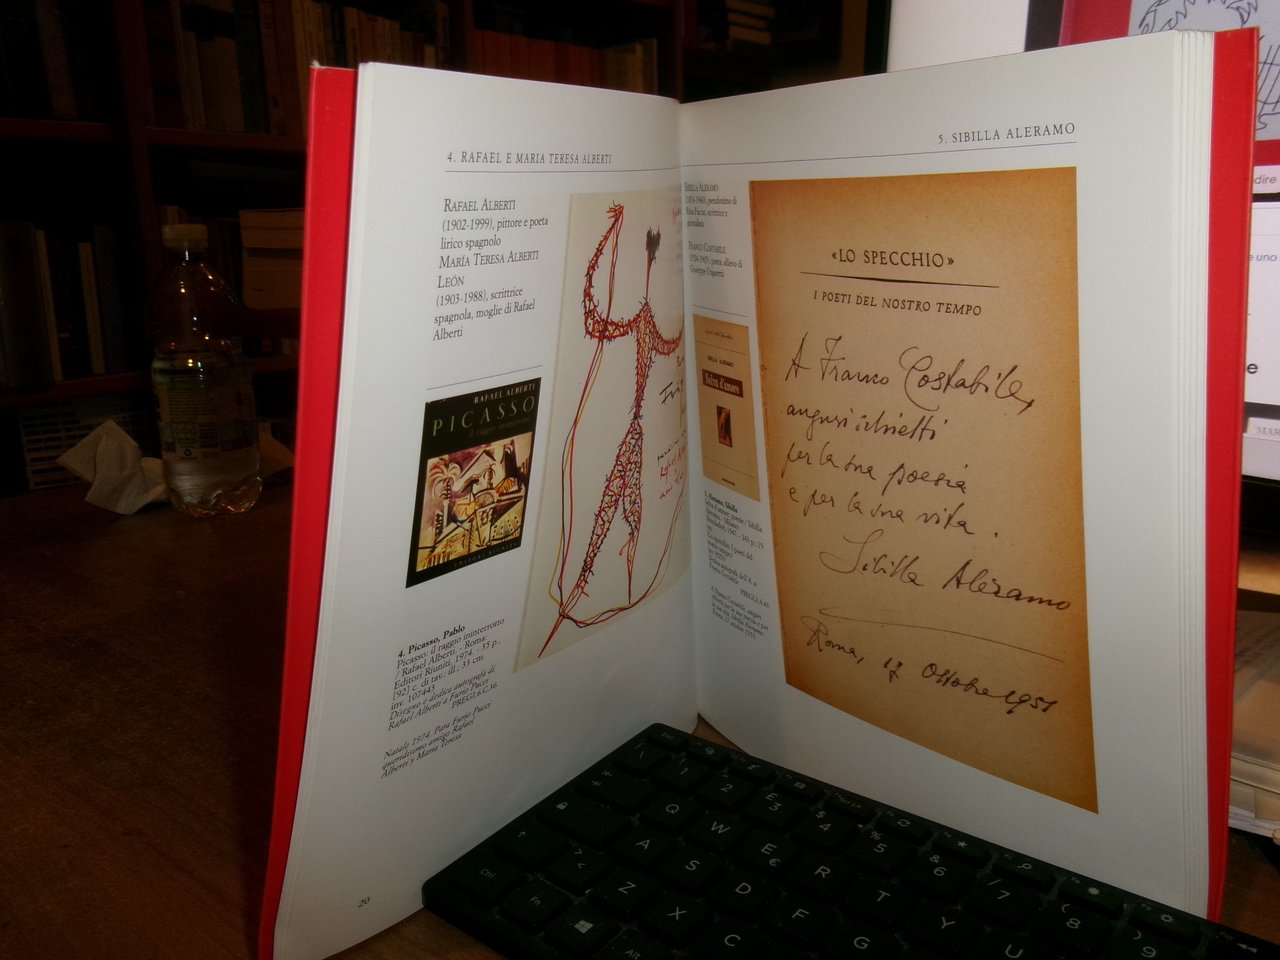 4. RAFAEL E MARIA TERESA ALBERTI
RAFAEL ALBERTI
(1902-1999), pittore e poeta
lirico spagnolo
MARÍA TERESA ALBERTI
LEÓN
(1903-1988), scrittrice
spagnola, moglie di Rafael
Alberti
RAFAEL ALBERTI
PICASSO
il raggio ininterrotto
EDITORI RIUNITI
4. Picasso, Pablo
Picasso: il raggio ininterrotto
/ Rafael Alberti. - Roma:
Editori Riuniti, 1974. - 35 p.,
[92] c. di tav.: ill.; 33 cm.
inv. 107443
Disegno e dedica autografa di
Rafael Alberti a Furio Pucci
PREGI 6.C.36
Natale 1974. Para Furio Pucci
queridissimo amigo Rafael
Alberti y María Teresa
20
5. SIBILLA ALERAMO
SIBILLA ALERAMO
(1876-1960), pseudonimo di
Rina Faccio, scrittrice e
giornalista
FRANCO COSTABILE
(1924-1965), poeta, allievo di
Giuseppe Ungaretti
SIBILLA ALERAMO
Selva d'amore
5. Aleramo, Sibilla
Selva d'amore: poesie / Sibilla
Aleramo. - Milano:
Mondadori, 1947. - 243 p.; 19
cm.
(Lo specchio. I poeti del
nostro tempo)
Dedica autografa dell'A. a
Franco Costabile
PREGI 2.A.45
A Franco Costabile, auguri
schietti per la sua poesia e per
la sua vita. Sibilla Aleramo
Roma, 17 ottobre 1951
«LO SPECCHIO»
I POETI DEL NOSTRO TEMPO
A Franco Costabile,
auguri schietti
per la sua poesia
e per la sua vita.
Sibilla Aleramo
Roma, 17 ottobre 1951
Esc
1 2 £ 3 $ 4 % 5 & 6 / 7 ( 8 ) 9
Q W E € R T Y U
A S D F G
Ctrl > < Z X C
Fn Alt